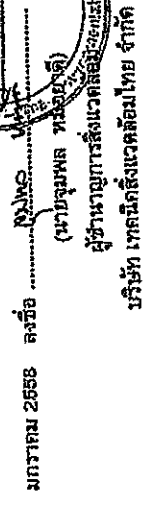 มกราคม 2558 ลงชื่อ
(นายจุมพล หมอยาดี)
ผู้ชำนาญการสิ่งแวดล้อม
บริษัท เทคนิคสิ่งแวดล้อมไทย จำกัด